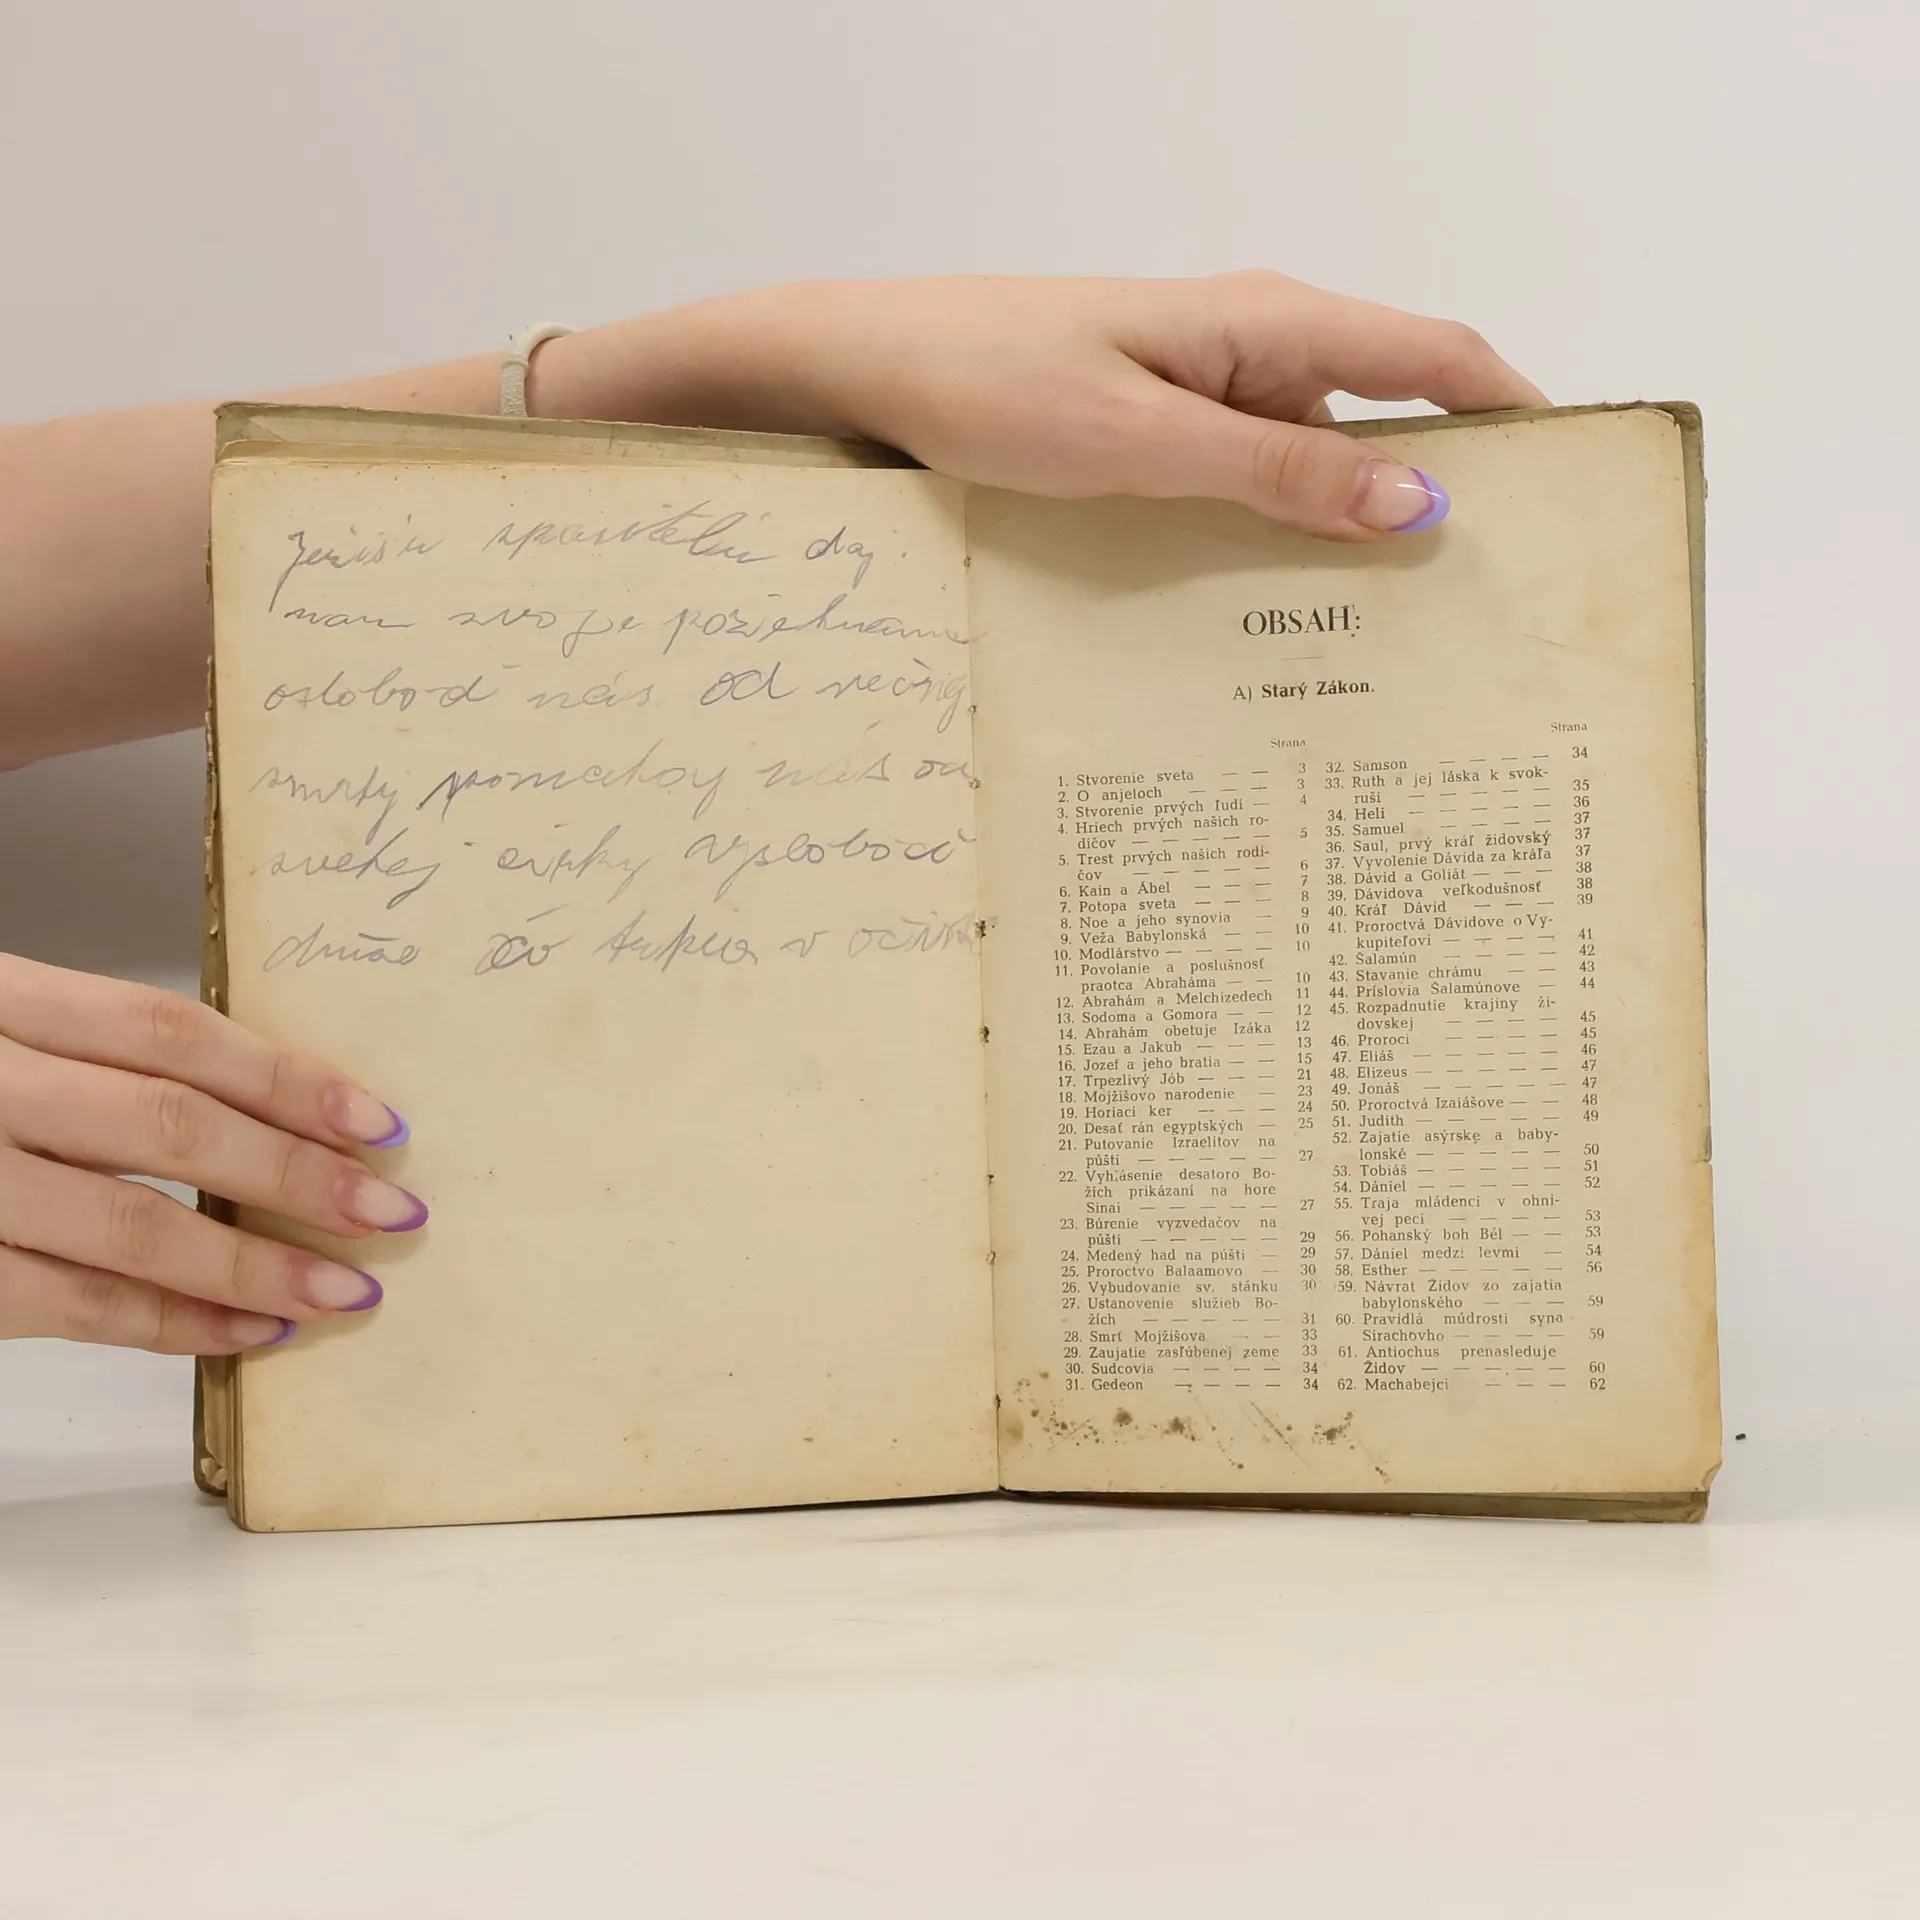 Ježišu spasitelu daj
nam svoje požehnanie
oslobod nás od večnej
smrty pomahaj nás od
svetej cirky vyslobod
duše čo trpia v očist
OBSAH:
A) Starý Zákon.
Strana
1. Stvorenie sveta — — 3
2. O anjeloch — — — 3
3. Stvorenie prvých ľudí — 4
4. Hriech prvých našich ro-
dičov — — — — — 5
5. Trest prvých našich rodi-
čov — — — — — 6
6. Kain a Ábel — — — 7
7. Potopa sveta — — — 8
8. Noe a jeho synovia — 9
9. Veža Babylonská — — 10
10. Modlárstvo — — — — 10
11. Povolanie a poslušnosť
praotca Abraháma — — 10
12. Abrahám a Melchizedech 11
13. Sodoma a Gomora — — 12
14. Abrahám obetuje Izáka 12
15. Ezau a Jakub — — — 13
16. Jozef a jeho bratia — — 15
17. Trpezlivý Jób — — — 21
18. Mojžišovo narodenie — 23
19. Horiaci ker — — — 24
20. Desať rán egyptských — 25
21. Putovanie Izraelitov na
púšti — — — — — 27
22. Vyhlásenie desatoro Bo-
žích prikázaní na hore
Sinai — — — — — 27
23. Búrenie vyzvedačov na
púšti — — — — — 29
24. Medený had na púšti — 29
25. Proroctvo Balaamovo — 30
26. Vybudovanie sv. stánku 30
27. Ustanovenie služieb Bo-
žích — — — — — 31
28. Smrť Mojžišova — — 33
29. Zaujatie zasľúbenej zeme 33
30. Sudcovia — — — — 34
31. Gedeon — — — — 34
Strana
32. Samson — — — — 34
33. Ruth a jej láska k svok-
ruši — — — — — 35
34. Heli — — — — — 36
35. Samuel — — — — 37
36. Saul, prvý kráľ židovský 37
37. Vyvolenie Dávida za kráľa 37
38. Dávid a Goliát — — — 38
39. Dávidova veľkodušnosť 38
40. Kráľ Dávid — — — 39
41. Proroctvá Dávidove o Vy-
kupiteľovi — — — — 41
42. Šalamún — — — — 42
43. Stavanie chrámu — — 43
44. Príslovia Šalamúnove — 44
45. Rozpadnutie krajiny ži-
dovskej — — — — 45
46. Proroci — — — — 45
47. Eliáš — — — — — 46
48. Elizeus — — — — 47
49. Jonáš — — — — — 47
50. Proroctvá Izaiášove — — 48
51. Judith — — — — — 49
52. Zajatie asýrske a baby-
lonské — — — — — 50
53. Tobiáš — — — — — 51
54. Dániel — — — — — 52
55. Traja mládenci v ohni-
vej peci — — — — 53
56. Pohanský boh Bél — — 53
57. Dániel medzi levmi — 54
58. Esther — — — — — 56
59. Návrat Židov zo zajatia
babylonského — — — 59
60. Pravidlá múdrosti syna
Sirachovho — — — — 59
61. Antiochus prenasleduje
Židov — — — — — 60
62. Machabejci — — — 62